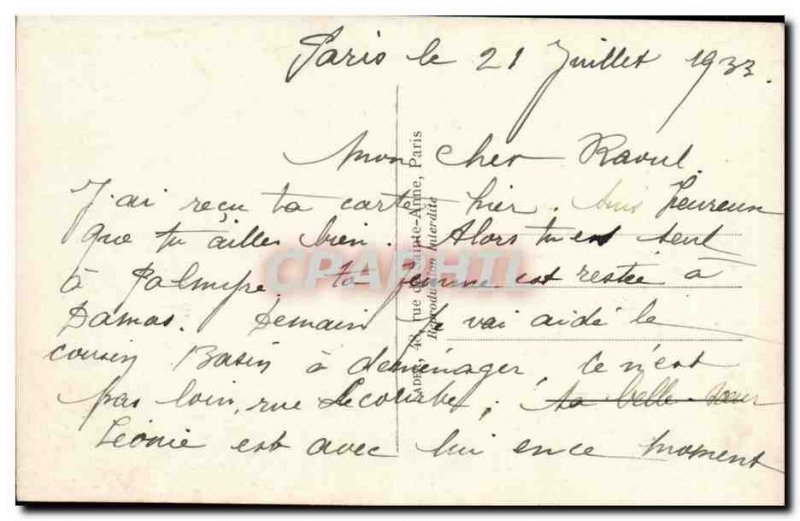 Paris le 21 Juillet 1933.
Mon cher Raoul
J'ai reçu ta carte hier. suis heureux
que tu ailles bien. Alors tu es seul
à Palmyre, ta femme est restée à
Damas. Demain je vai aidé le
cousin Basin à deménager, ce n'est
pas loin, rue Lecourbe, sa belle-soeur
Léonie est avec lui en ce moment
ADE, 4 , rue Sainte-Anne, Paris
Reproduction interdite
CPARPHIL